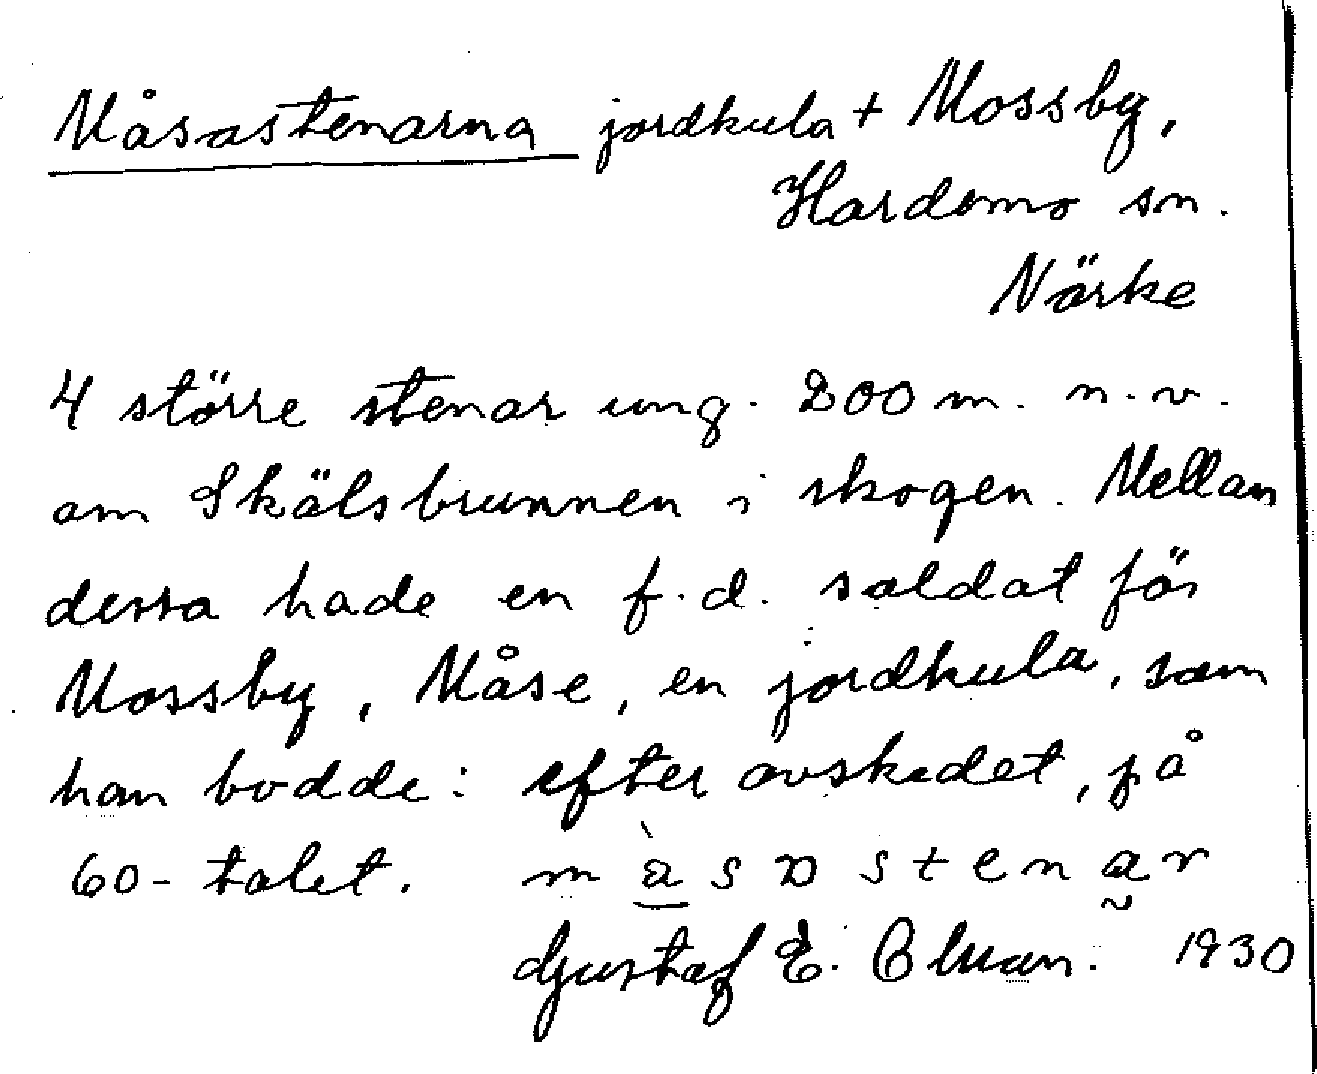 Måsastenarna jordkula + Mossby,
Hardemo sn.
Närke
4 större stenar ung. 200 m. n.v.
om Skälsbrunnen i skogen. Mellan
dessa hade en f.d. soldat för
Mossby, Måse, en jordkula, som
han bodde i efter avskedet, på
60-talet. 
Gustaf E. 1930